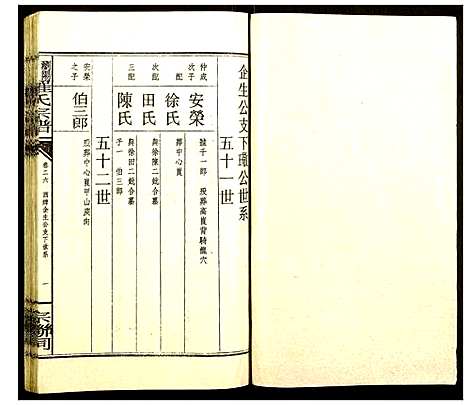 企生公支下聰公世系
五十一世
仲成次子
安榮
號千一郎 歿葬高崀背騎龍穴
配
徐氏
葬中心崀
次配
田氏
與徐陳二妣合墓
三配
陳氏
與徐田二妣合墓
子一 伯三郎
五十二世
安榮之子
伯三郎
歿葬中心崀甲山庚向
崔氏宗譜
卷二六
支下世系
一
宗聯司